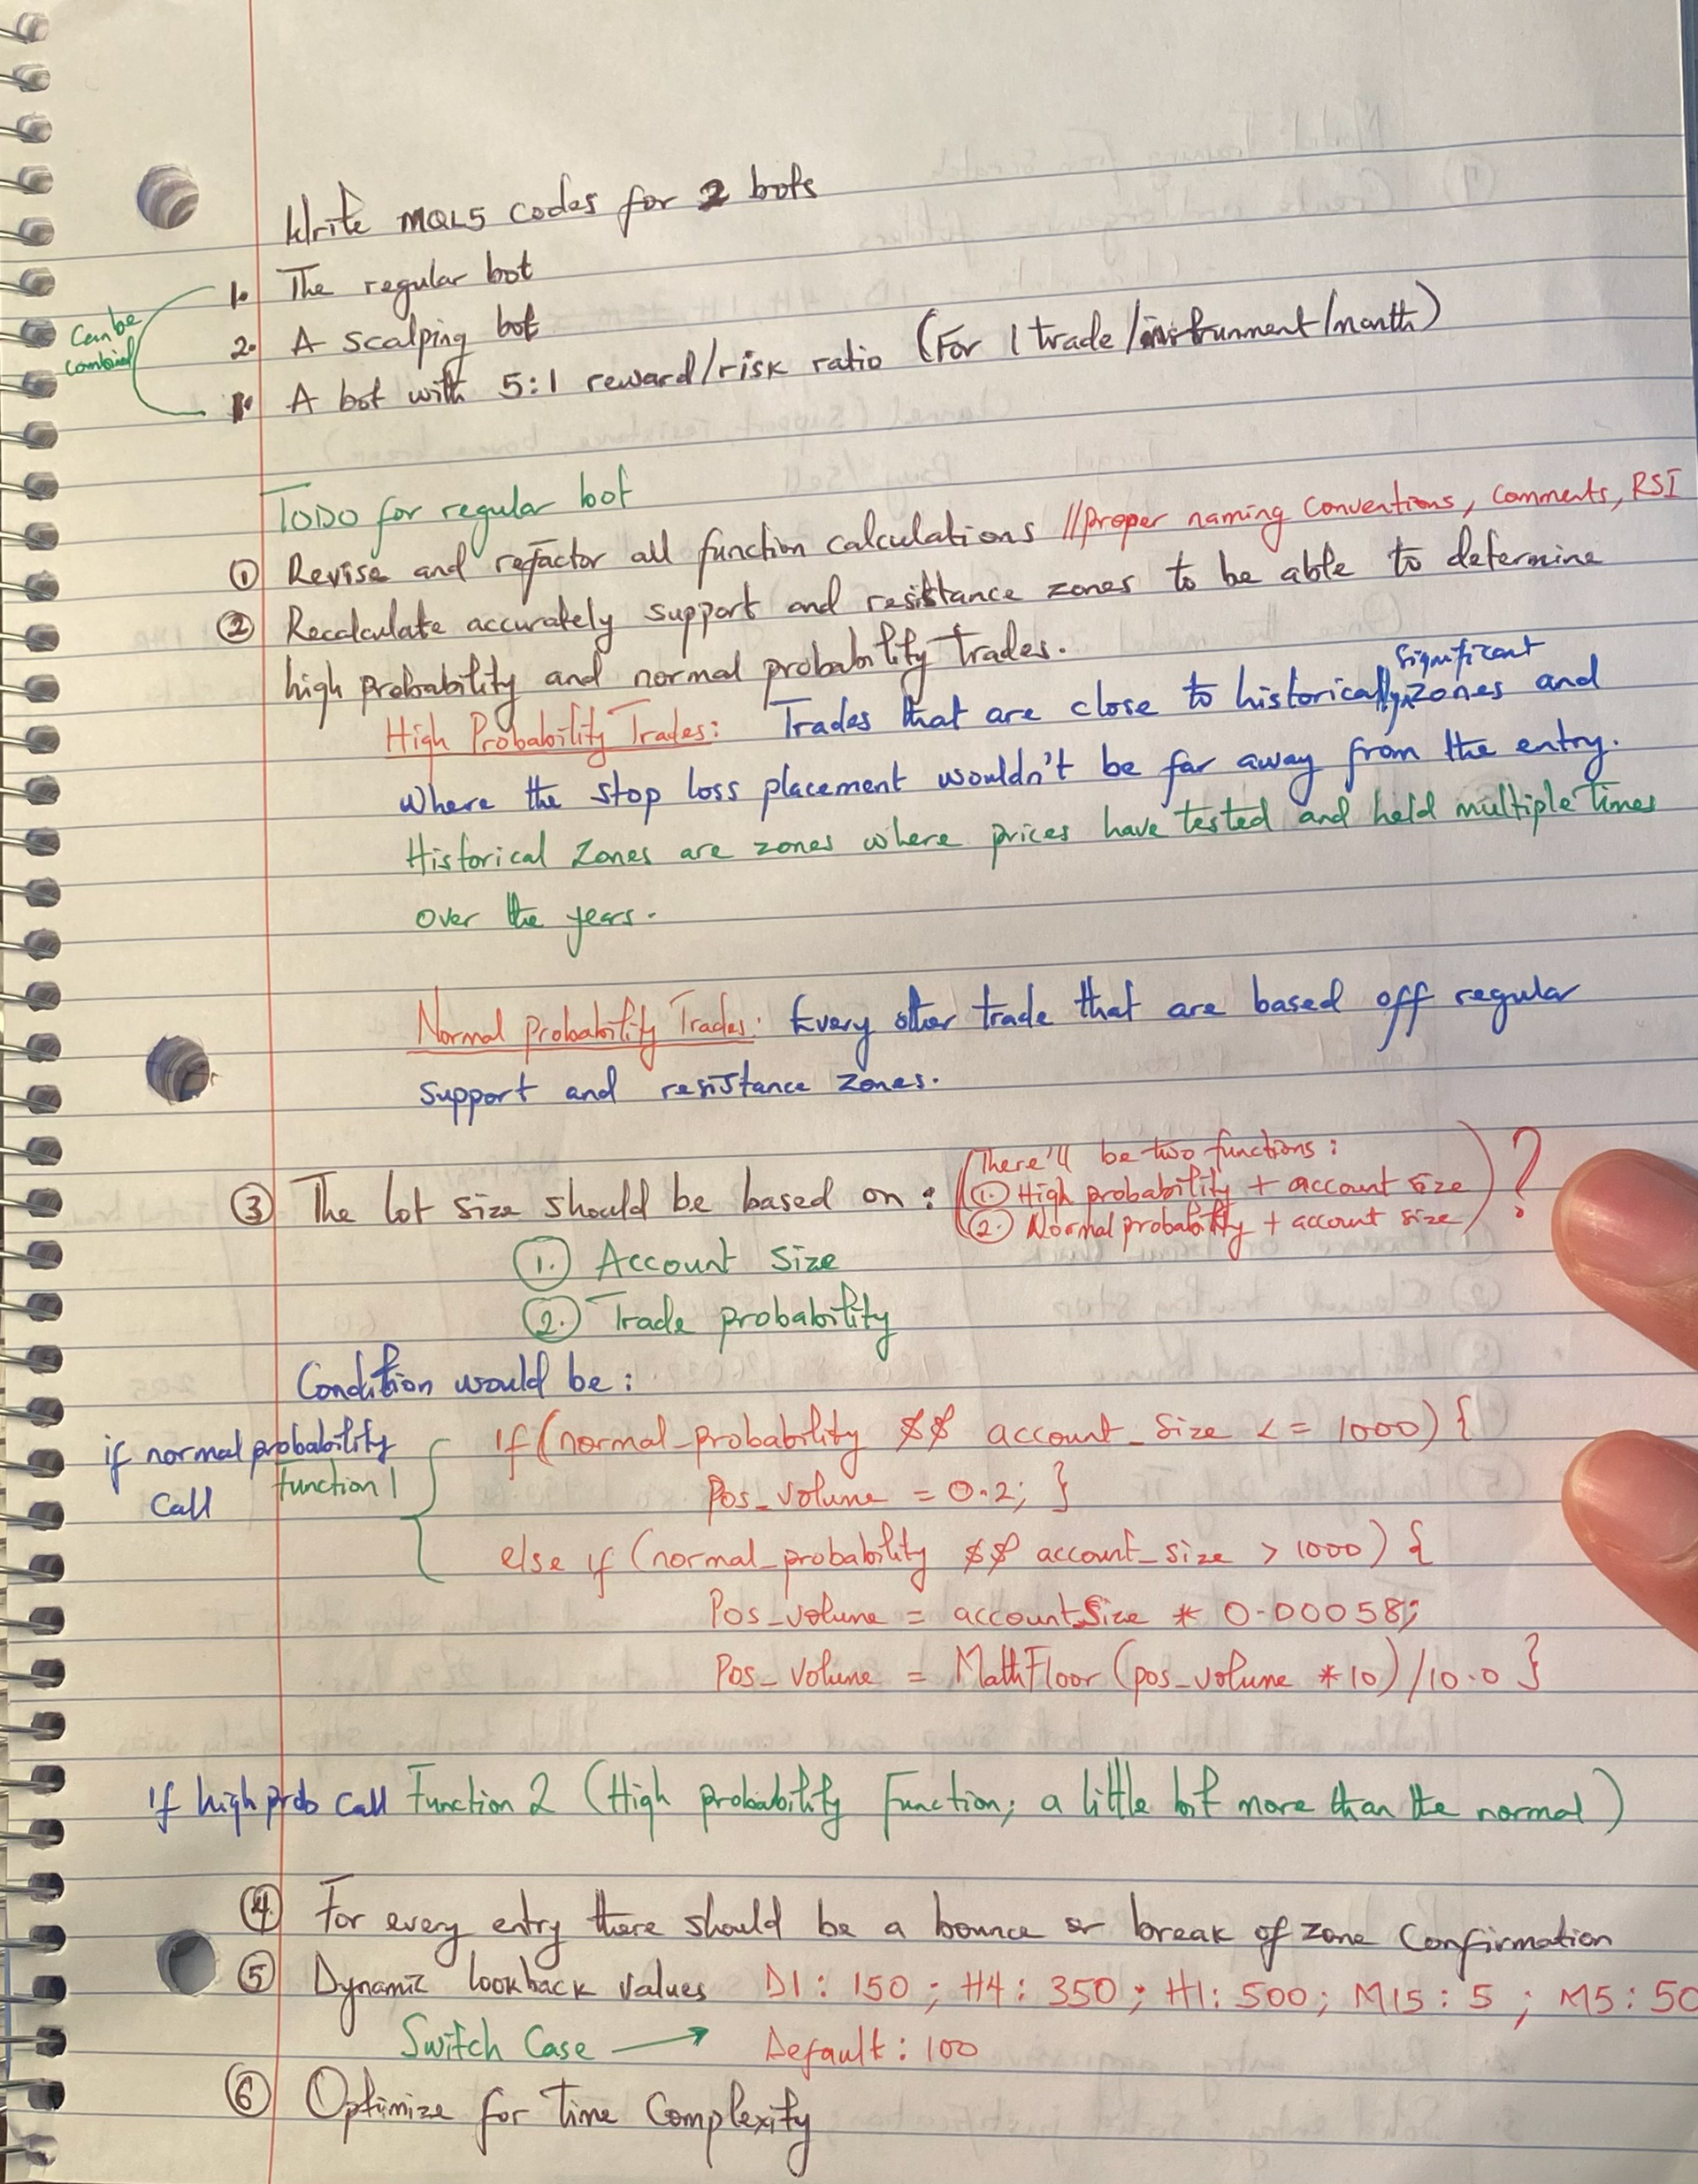 Write MQL5 codes for 2 bots
1. The regular bot
2. A scalping bot
1. A bot with 5:1 reward/risk ratio (For 1 trade/instrument/month)
Can be
combined
TODO for regular bot
① Revise and refactor all function calculations //proper naming conventions, comments, RSI
② Recalculate accurately support and resistance zones to be able to determine
high probability and normal probability trades.
High Probability Trades: Trades that are close to historically significant zones and
where the stop loss placement wouldn't be far away from the entry.
Historical Zones are zones where prices have tested and held multiple times
over the years.
Normal Probability Trades: Every other trade that are based off regular
support and resistance zones.
③ The lot size should be based on: (There'll be two functions:
① High probability + account size
② Normal probability + account size)?
① Account size
② Trade probability
Condition would be:
if normal probability
call function 1
if (normal_probability $$ account_size <= 1000) {
Pos_volume = 0.2; }
else if (normal_probability $$ account_size > 1000) {
Pos_volume = accountSize * 0.00058;
Pos_volume = MathFloor (pos_volume *10)/10.0 }
If high prob call Function 2 (High probability Function; a little bit more than the normal)
④ For every entry there should be a bounce or break of zone confirmation
⑤ Dynamic lookback values D1: 150; H4: 350; H1: 500; M15: 5; M5: 50
Switch Case → Default: 100
⑥ Optimize for Time Complexity